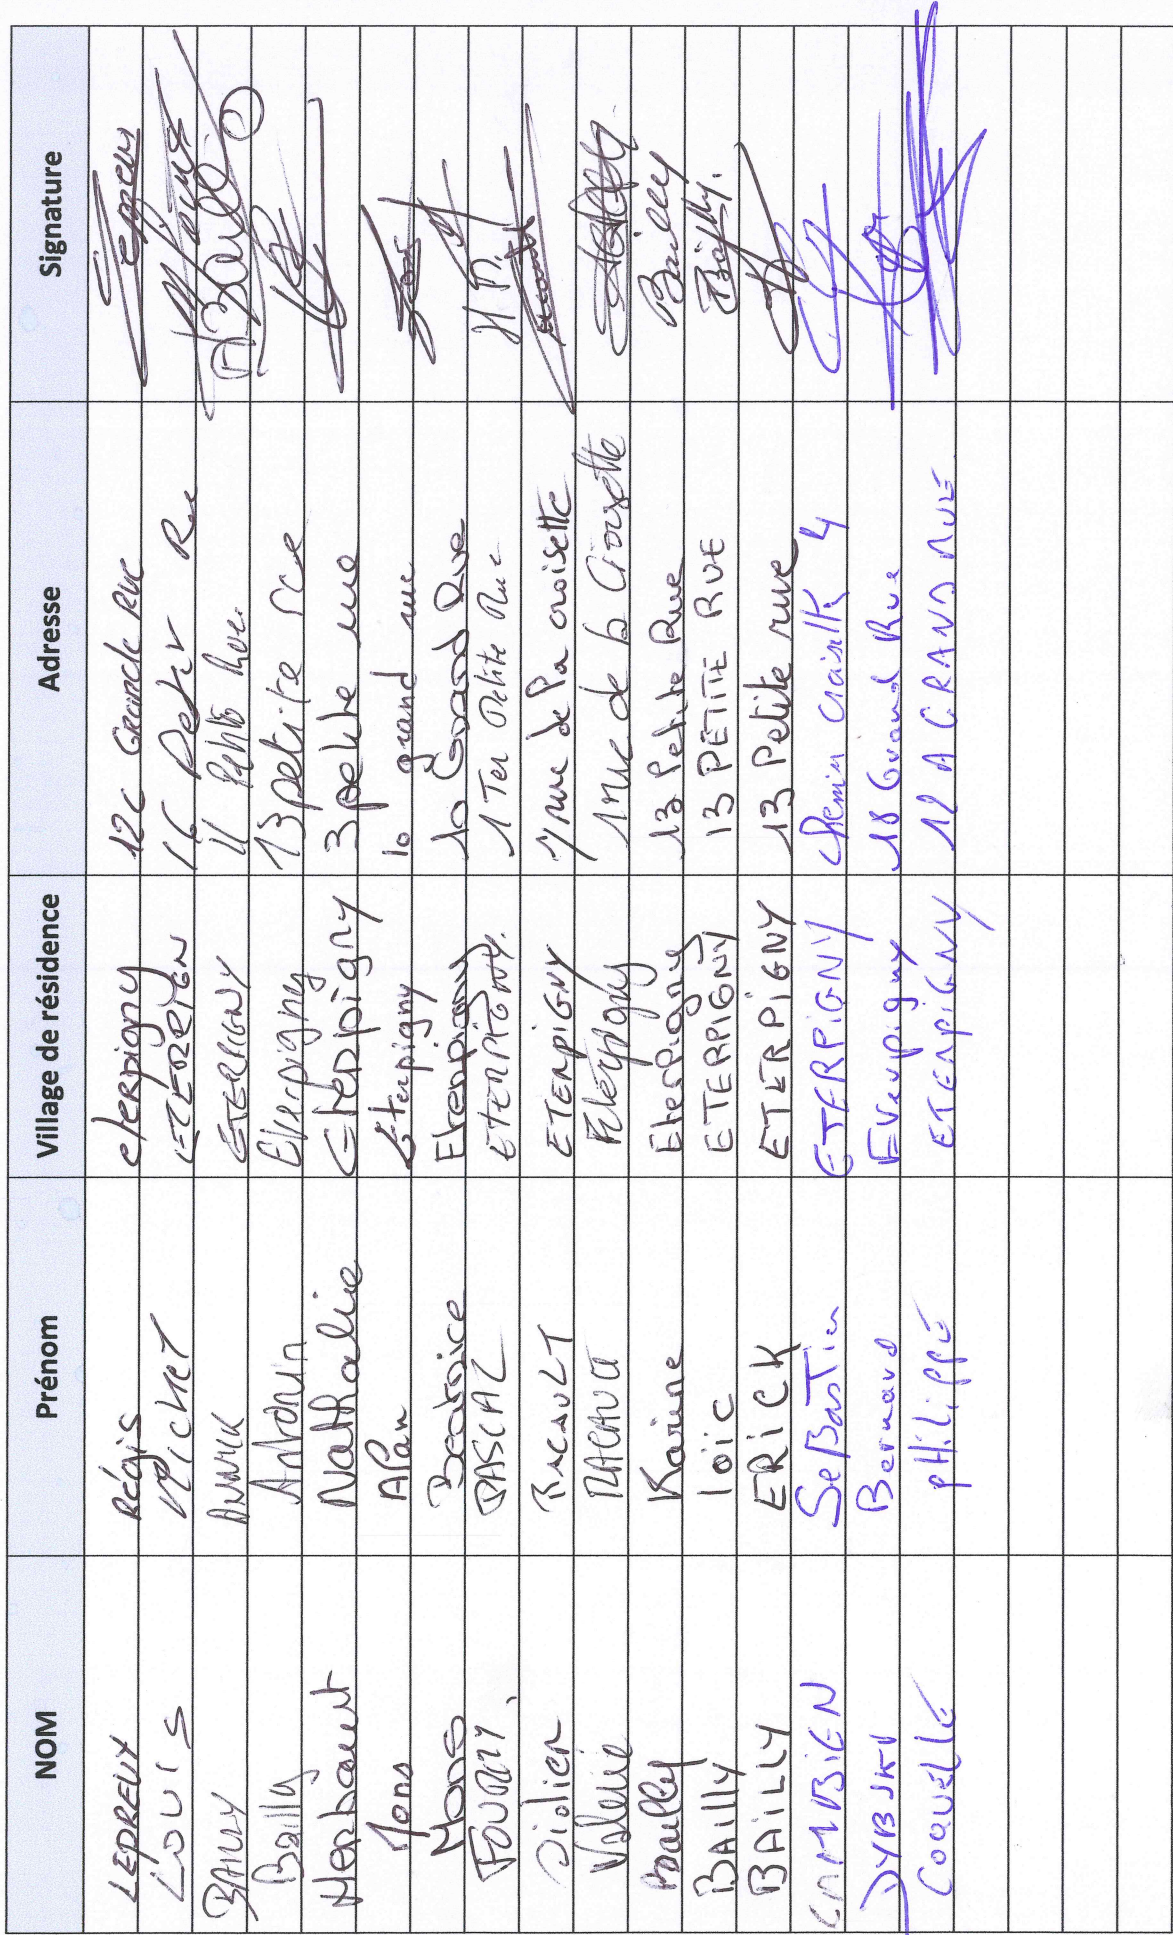 NOM Prénom Village de résidence Adresse Signature
LEDREUX Régis eterpigny 12c Grande Rue
LOUIS MICHEL ETERPIGN 16 Petit Rue
BAILLY ANNICK ETERPIGNY 11 Petite Rue
Bailly Antonin Eterpigny 13 petite rue
Herbaut Nathalie Eterpigny 3 petite rue
Mons Alan Eterpigny 10 grand rue
Mons Beatrice Eterpigny 10 Grand Rue
FOURNY, PASCAL ETERPIGNY. 1 Ter Petite Rue
Didier ETERPIGNY 1 rue de la croisette
Valerie Eterpigny 1 rue de la Croisette
Bailly Karine Eterpigny 13 Petite Rue Bailly
BAILLY loïc ETERPIGNY 13 PETITE RUE Bailly.
BAILLY ERICK ETERPIGNY 13 Petite rue
CAMBIEN SeBasTien ETERPIGNY chemin croisette 4
Bernard Eterpigny 18 Grand Rue
COQUELLE pHilippe ETERPIGNY 12 A GRAND RUE